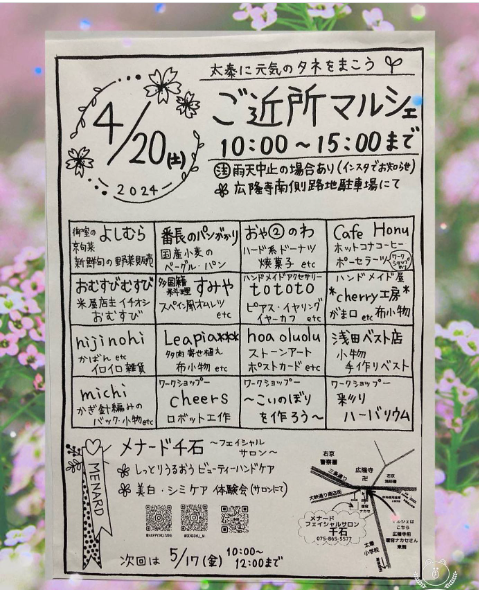 太秦に元気のタネをまこう
4/20(土)
2024
ご近所マルシェ
10:00〜15:00まで
注 雨天中止の場合あり(インスタでお知らせ)
広隆寺南側路地駐車場にて
御室の
京旬菜
よしむら
新鮮旬の野菜販売
番長のパンがかり
国産小麦の
ベーグル・パン
おや②のわ
ハード系ドーナツ
焼菓子 etc
Cafe Honu
ホットコナコーヒー
ポーセラーツ
ワークショップあり
おむすびむすび
米屋店主イチオシ
おむすび
多国籍
料理
すみや
スペイン風オムレツ
etc
ハンドメイドアクセサリー
tototo
ピアス・イヤリング
イヤーカフ etc
ハンドメイド屋
*cherry工房*
がま口 etc 布小物
nijinohi
かばん etc
イロイロ雑貨
Leapia***
多肉寄せ植え
布小物 etc
hoa oluolu
ストーンアート
ポストカード etc
浅田ベスト店
小物
手作りベスト
michi
かぎ針編みの
バック・小物 etc
ワークショップー
cheers
ロボット工作
ワークショップー
〜こいのぼり
を作ろう〜
ワークショップー
ハーバリウム
MENARD
メナード千石〜フェイシャル
サロン〜
しっとりうるおうビューティーハンドケア
美白・シミケア 体験会(サロンにて)
次回は 5/17(金) 10:00〜
12:00まで
右京
警察署
三条通り
広隆寺
卍
大映通り商店街
メナード
フェイシャルサロン
千石
075-865-5577
太秦
小学校
マルシェは
こちら